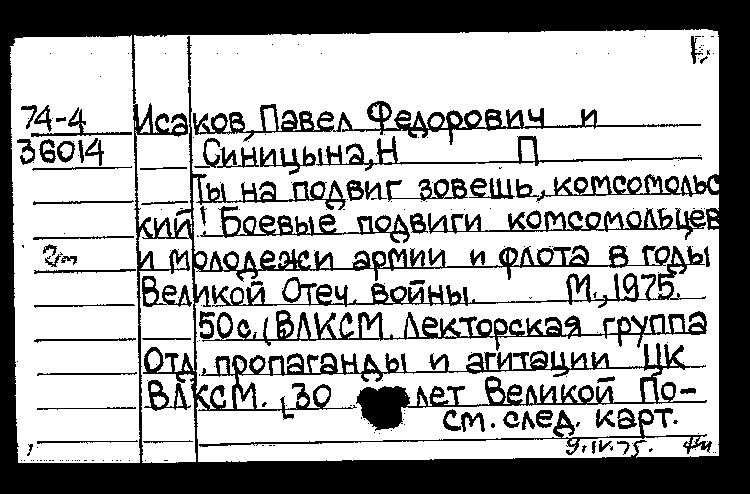 74-4 Исаков, Павел Федорович и
36014 Синицына, Н П
Ты на подвиг зовешь, комсомольс
кий! Боевые подвиги комсомольцев
и молодежи армии и флота в годы
Великой Отеч. войны. М., 1975.
50с. (ВЛКСМ. Лекторская группа
Отд. пропаганды и агитации ЦК
ВЛКСМ. [30 лет Великой По-
см. след. карт.
9.IV.75.